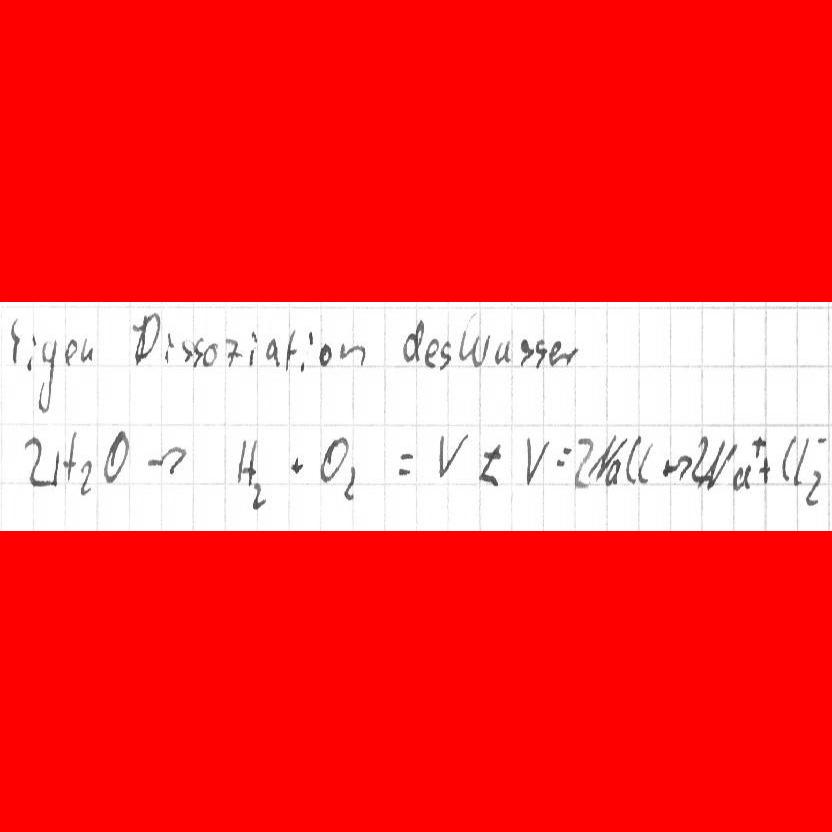 Eigen Dissoziation des Wasser
2H₂O → H₂ + O₂ = V ± V = 2NaCl → 2Na⁺ + Cl₂⁻